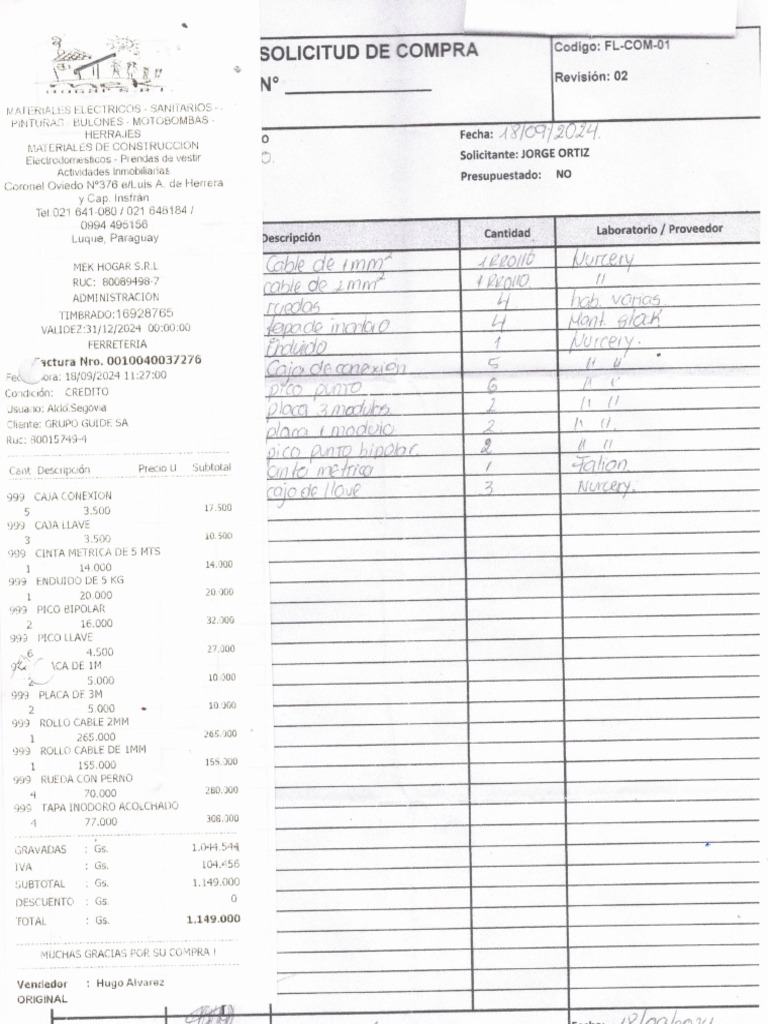 HOGAR S.R.L
MATERIALES ELECTRICOS - SANITARIOS -
PINTURAS - BULONES - MOTOBOMBAS -
HERRAJES
MATERIALES DE CONSTRUCCION
Electrodomesticos - Prendas de vestir
Actividades Inmobiliarias
Coronel Oviedo N°376 e/Luis A. de Herrera
y Cap. Insfrán
Tel.021 641-080 / 021 646184 /
0994 495156
Luque, Paraguay
MEK HOGAR S.R.L
RUC: 80089498-7
ADMINISTRACION
TIMBRADO:16928765
VALIDEZ:31/12/2024 00:00:00
FERRETERIA
actura Nro. 0010040037276
Fec ora: 18/09/2024 11:27:00
Condición: CREDITO
Usuario: Aldo.Segovia
Cliente: GRUPO GUIDE SA
Ruc: 80015749-4
Cant Descripción Precio U Subtotal
999 CAJA CONEXION
5 3.500 17.500
999 CAJA LLAVE
3 3.500 10.500
999 CINTA METRICA DE 5 MTS
1 14.000 14.000
999 ENDUIDO DE 5 KG
1 20.000 20.000
999 PICO BIPOLAR
2 16.000 32.000
999 PICO LLAVE
6 4.500 27.000
ACA DE 1M
2 5.000 10.000
999 PLACA DE 3M
2 5.000 10.000
999 ROLLO CABLE 2MM
1 265.000 265.000
999 ROLLO CABLE DE 1MM
1 155.000 155.000
999 RUEDA CON PERNO
4 70.000 280.000
999 TAPA INODORO ACOLCHADO
4 77.000 308.000
GRAVADAS : Gs. 1.044.544
IVA : Gs. 104.456
SUBTOTAL : Gs. 1.149.000
DESCUENTO : Gs. 0
TOTAL : Gs. 1.149.000
MUCHAS GRACIAS POR SU COMPRA !
Vendedor : Hugo Alvarez
ORIGINAL
SOLICITUD DE COMPRA
N°
Codigo: FL-COM-01
Revisión: 02
O
O.
Fecha: 18/09/2024.
Solicitante: JORGE ORTIZ
Presupuestado: NO
Descripción Cantidad Laboratorio / Proveedor
Cable de 1mm² 1 RROLLO Nurcery
cable de 2mm² 1 RROLLO "
ruedas 4 hab. varias
tapa de inodoro 4 Mant. Stock
Enduido 1 Nurcery.
Caja de conexión 5 " "
pico punto 6 " "
placa 3 modulos 2 " "
placa 1 modulo 2 " "
pico punto bipolar. 2 " "
cinta métrica 1
caja de llave 3 Nurcery.
Fecha: 18/09/2024